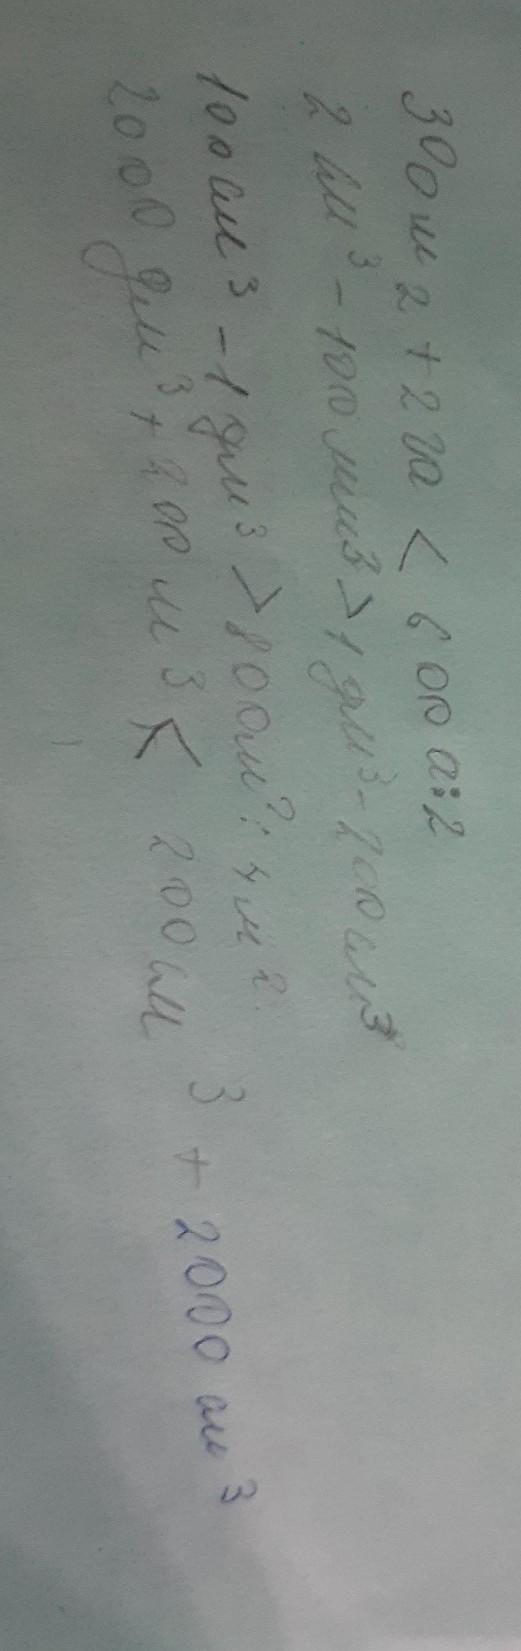 300 м2 + 2 га < 600 а:2
2 см³ - 100 мм3 > 1 дм³ - 200 см3
100 см³ - 1 дм³ > 800 м²: 4 м²
2000 дм³ + 200 м3 < 200 см 3 + 2000 см³